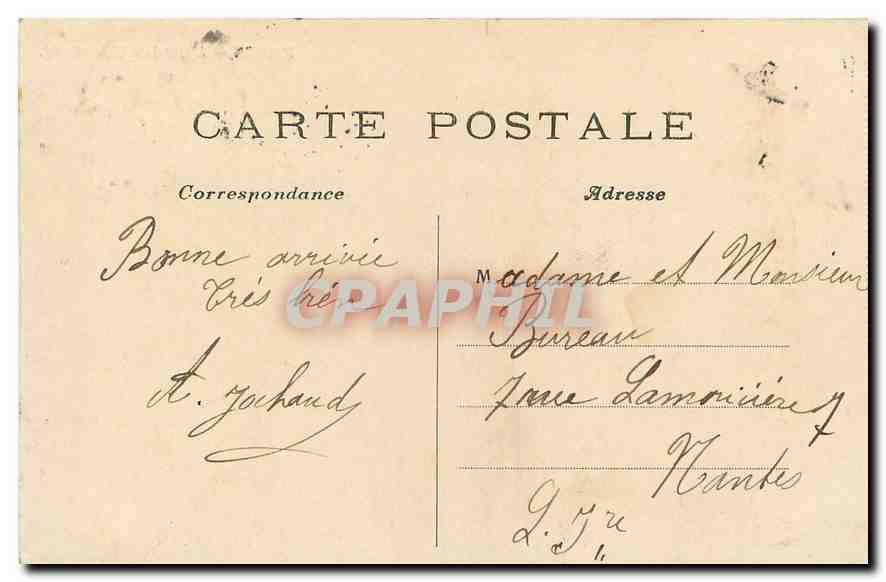 CARTE POSTALE
Correspondance
Adresse
Bonne arrivie
très bien
A. Jochaud
Madame et Monsieur
Bureau
7 rue Lamoricière 7
Nantes
L. Jre
CPAPHIL